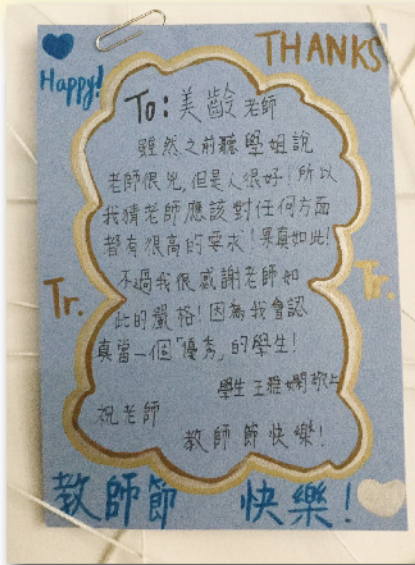 THANKS
Happy!
To：美齡老師
雖然之前聽學姐說
老師很兇,但是人很好！所以
我猜老師應該對任何方面
都有很高的要求！果真如此！
不過我很感謝老師如
此的嚴格！因為我會認
真當一個「優秀」的學生！
學生 王雅嫻 敬上
祝老師
教師節快樂！
Tr.
Tr.
教師節 快樂！